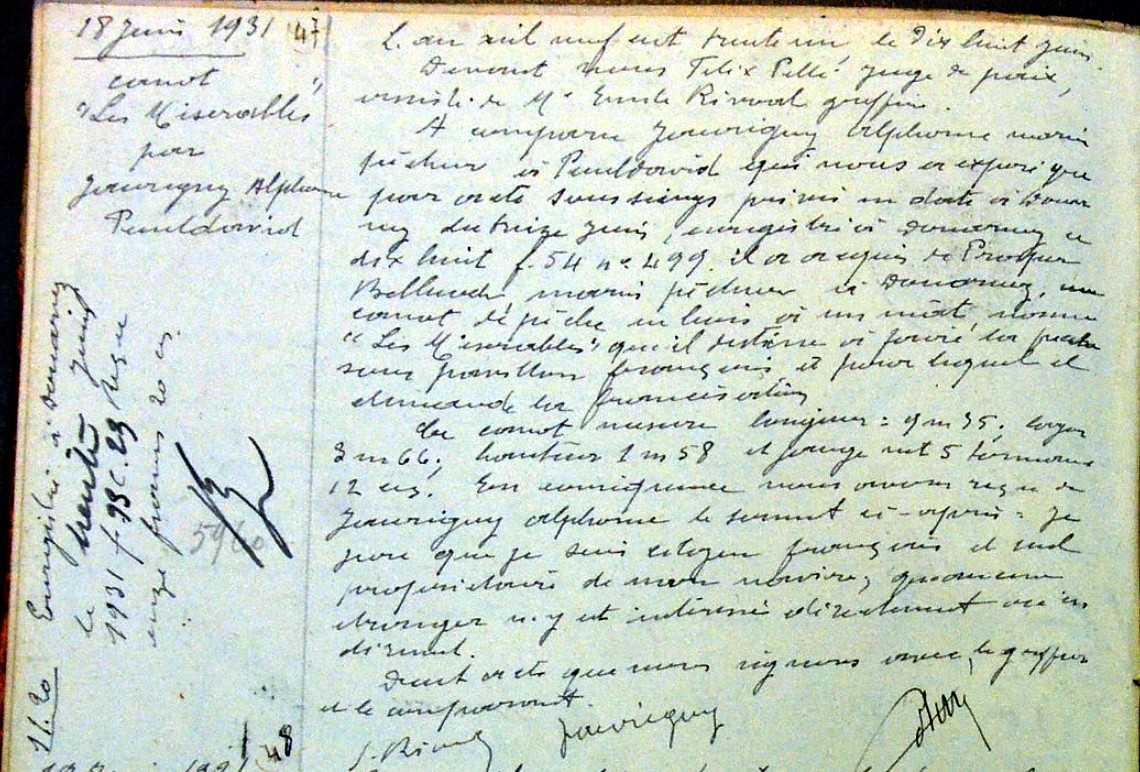 18 Juin 1931
47
canot
"Les Miserables"
par
Jauvrigny Alphonse
Pouldavid
Enregistré à Douarnenez
le trente Juin
1931 f. 93 C. 29 Reçu
onze francs 20 c.
11.20
L'an mil neuf cent trente un, le dix huit Juin.
Devant nous Félix Pellé Juge de paix,
assisté de Me Emile Rivoal greffier.
A comparu Jauvrigny Alphonse marin
pêcheur à Pouldavid qui nous a exposé que
par acte sous seings privés en date à Douar
nez du treize Juin, enregistré à Douarnez le
dix huit f. 54 no 499. il a acquis de Prosper
marin pêcheur à Douarnez, un
canot de pêche en bois à un mât nommé
"Les Miserables", qu'il destine à faire la pêche
sous pavillon français et pour lequel il
demande la francisation
Ce canot mesure longueur = 9 m 35, largeur
3 m 66, hauteur 1 m 58 et jauge net 5 tonneaux
12 cs. En conséquence nous avons reçu de
Jauvrigny Alphonse le serment ci-après = Je
jure que je suis citoyen français et seul
propriétaire de mon navire, qu'aucun
étranger n'y est intéressé directement ou in
directement.
Dont acte que nous signons avec le greffier
et le comparant.
Jauvrigny
48